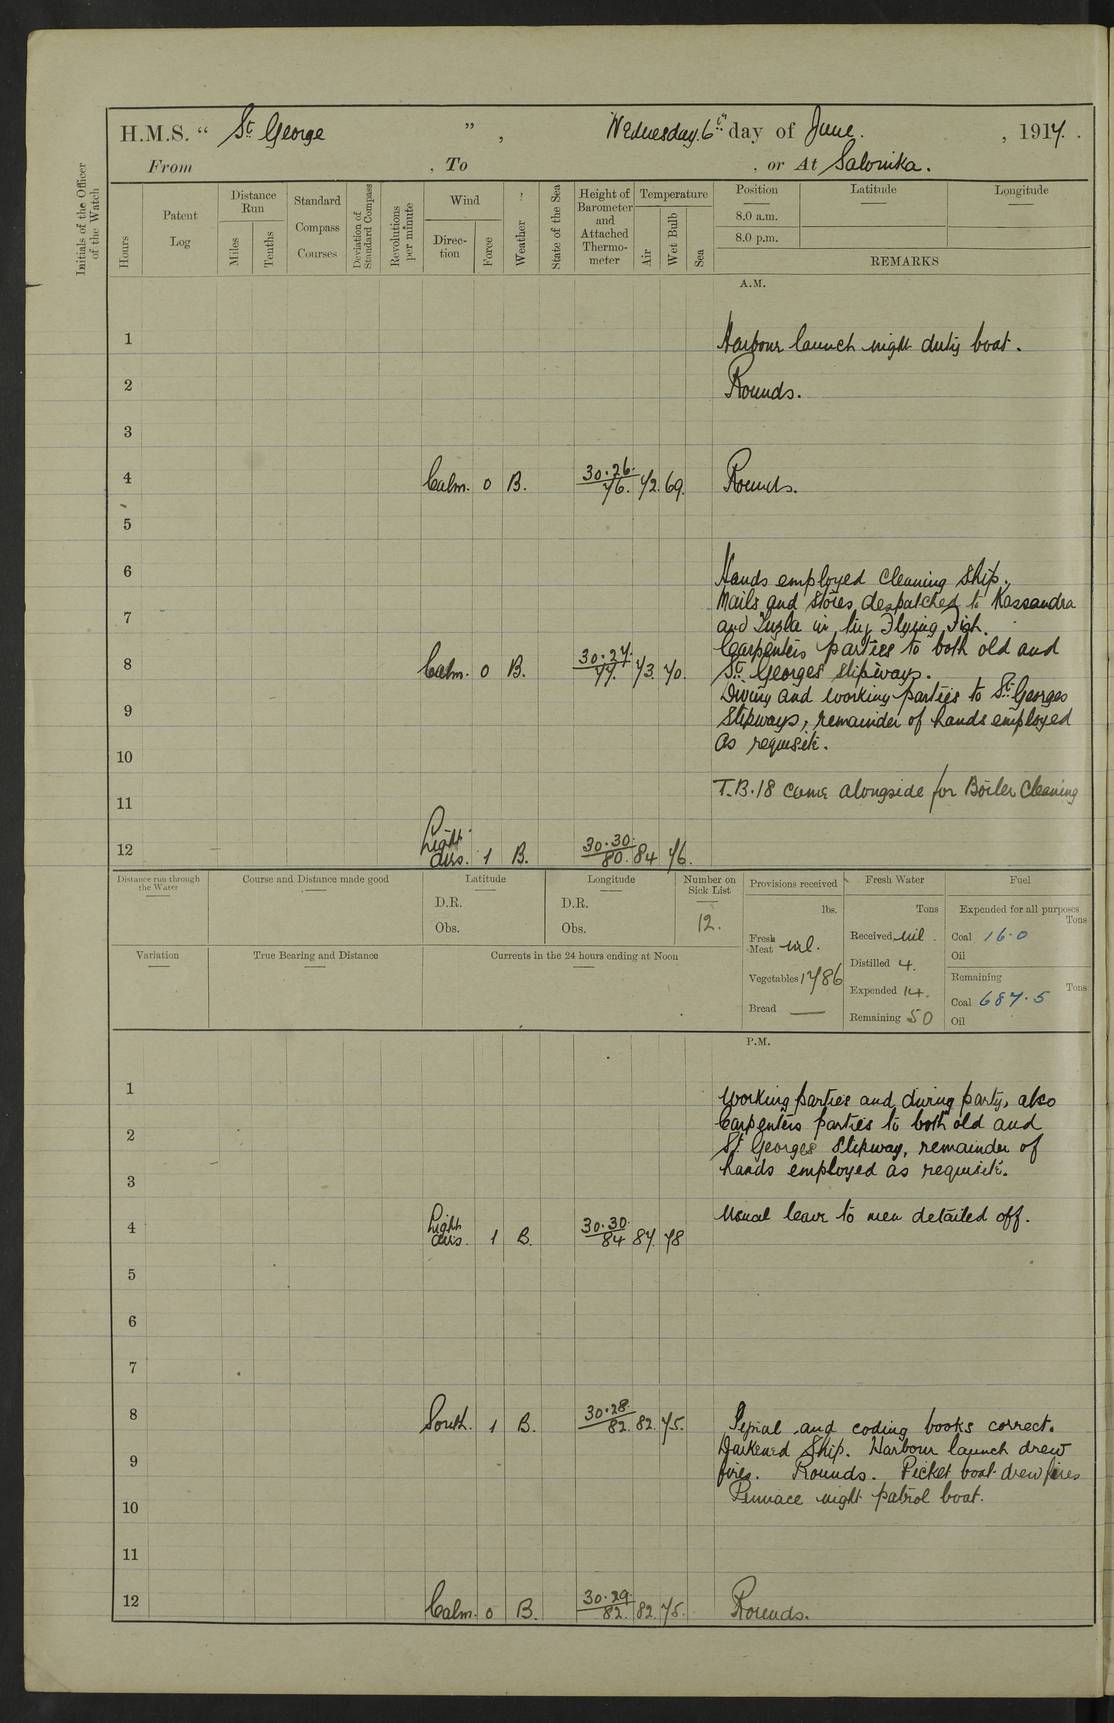 H.M.S. " St. George ", Wednesday. 6th day of June. , 1917.
From , To , or At Salonika.
Initials of the Officer of the Watch
Hours
Patent Log
Distance Run
Miles
Tenths
Standard Compass Courses
Deviation of Standard Compass
Revolutions per minute
Wind
Direction
Force
Weather
State of the Sea
Height of Barometer and Attached Thermometer
Temperature
Air
Wet Bulb
Sea
Position Latitude Longitude
8.0 a.m.
8.0 p.m.
REMARKS
A.M.
1 Harbour launch night duty boat.
2 Rounds.
3
4 Calm. 0 B. 30.26. 76. 72. 69. Rounds.
5
6 Hands employed cleaning Ship.
Mails and stores despatched to Kassandra
7 and Tuzla in tug Flying Fish.
Carpenters parties to both old and
8 Calm. 0 B. 30.27. 77. 73. 70. St. Georges slipways.
Diving and working parties to St. Georges
9 Slipways, remainder of hands employed
as requisite.
10
T.B. 18 came alongside for Boiler Cleaning
11
12 Light airs. 1 B. 30.30. 80. 84 76.
Distance run through the Water
Course and Distance made good
Latitude
D.R.
Obs.
Longitude
D.R.
Obs.
Number on Sick List
12.
Provisions received
lbs.
Fresh Meat nil.
Vegetables 1786
Bread —
Fresh Water
Tons
Received nil.
Distilled 4.
Expended 14.
Remaining 50
Fuel
Expended for all purposes
Tons
Coal 16.0
Oil
Remaining
Tons
Coal 687.5
Oil
Variation
True Bearing and Distance
Currents in the 24 hours ending at Noon
P.M.
1 Working parties and diving party, also
Carpenters parties to both old and
2 St. Georges Slipway, remainder of
hands employed as requisite.
3
Usual leave to men detailed off.
4 Light airs. 1 B. 30.30. 84 87. 78
5
6
7
8 South. 1 B. 30.28. 82. 82. 75. Signal and coding books correct.
Darkened Ship. Harbour launch drew
9 fires. Rounds. Picket boat drew fires
Pinnace night patrol boat.
10
11
12 Calm. 0 B. 30.29. 82. 82. 75. Rounds.